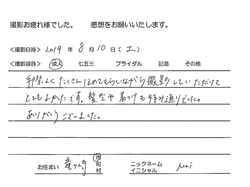 撮影お疲れ様でした。　感想をお願いいたします。
<撮影日時> 2019 年 8 月 10 日 (土)
<撮影項目> 成人　七五三　ブライダル　記念　その他
手際よくたくさんほめてもらいながら撮影していただけて
とてもよかったです。髪型や着付も希望通りでした。
ありがとうございました。
お住まい　市町村　ニックネーム イニシャル